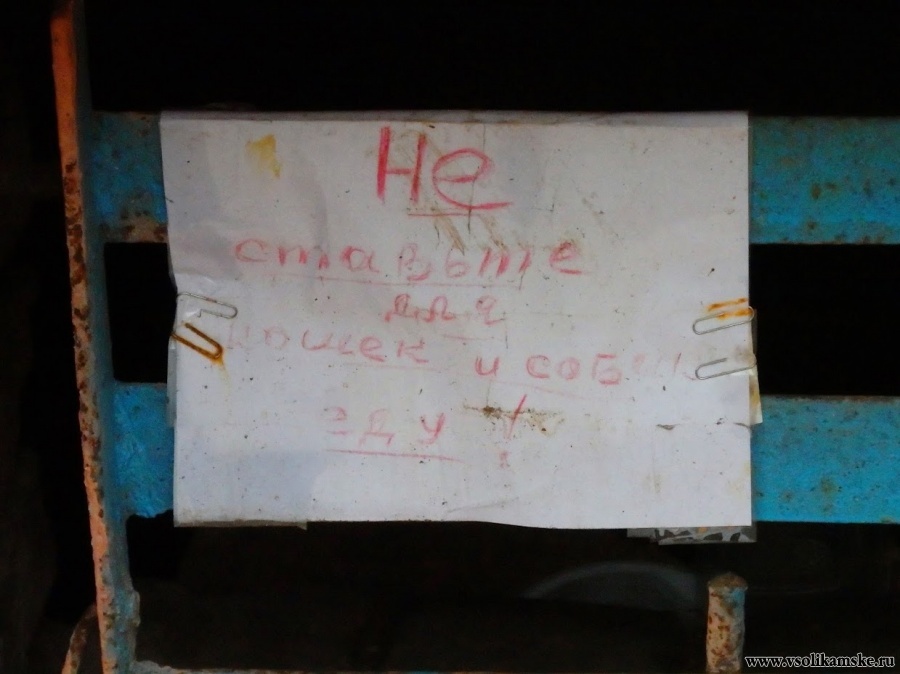 Не
ставьте
для
кошек и собак
еду !
www.vsolikamske.ru